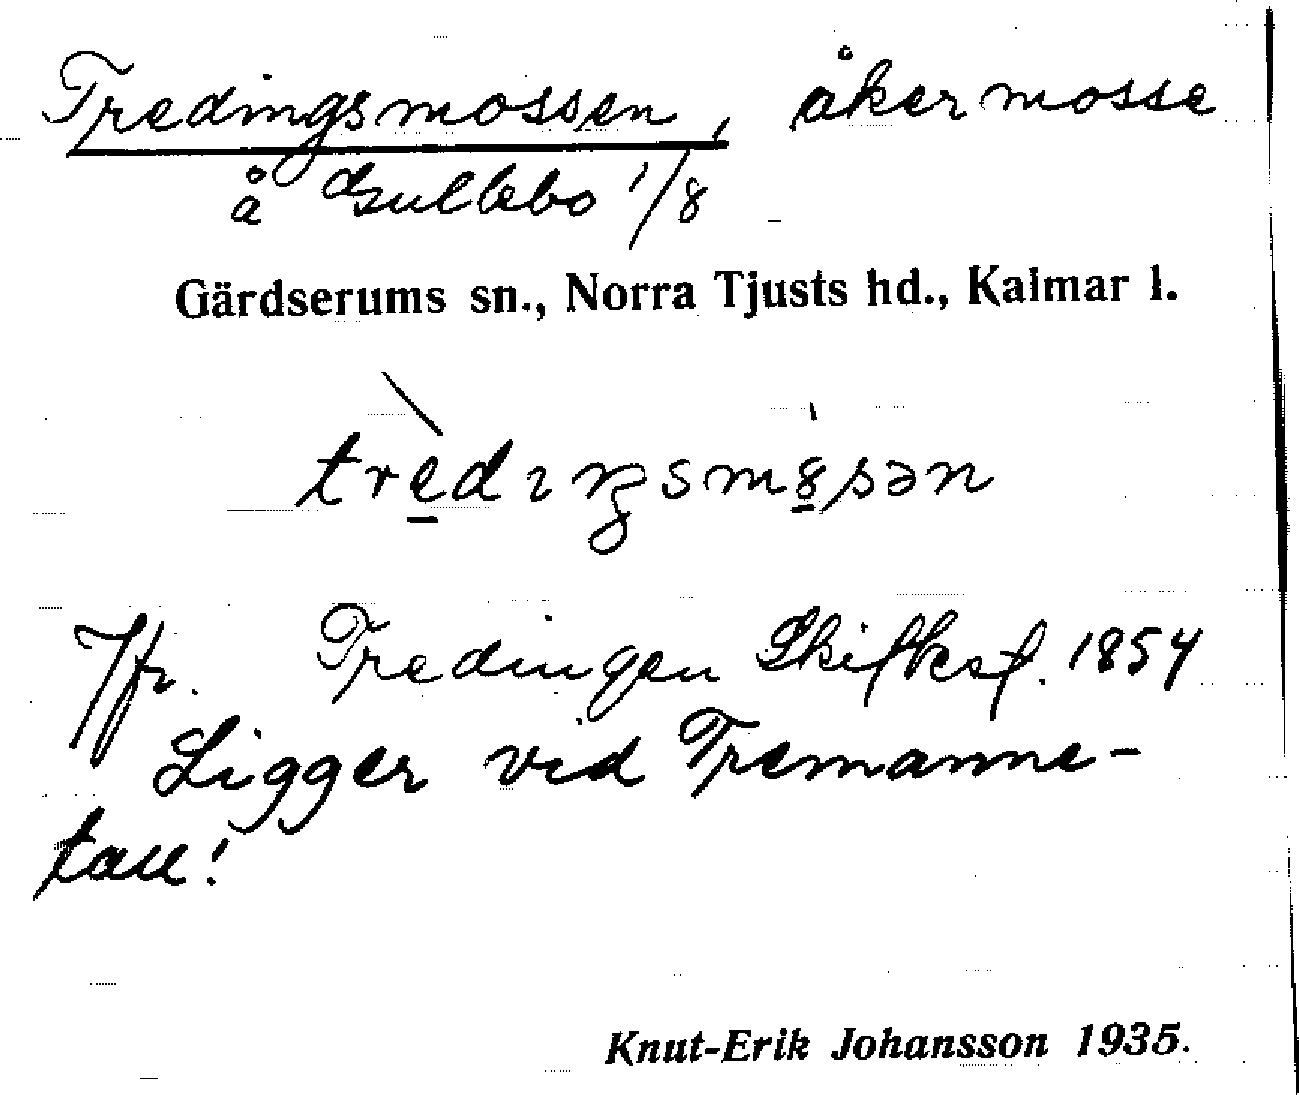 Tredingsmossen, åkermosse
å Gullebo 1/8
Gärdserums sn., Norra Tjusts hd., Kalmar l.
trèdıŋsmȣsən
Jfr. Tredingen Skifkesf. 1854
Ligger vid Tremanne-
tall!
Knut-Erik Johansson 1935.